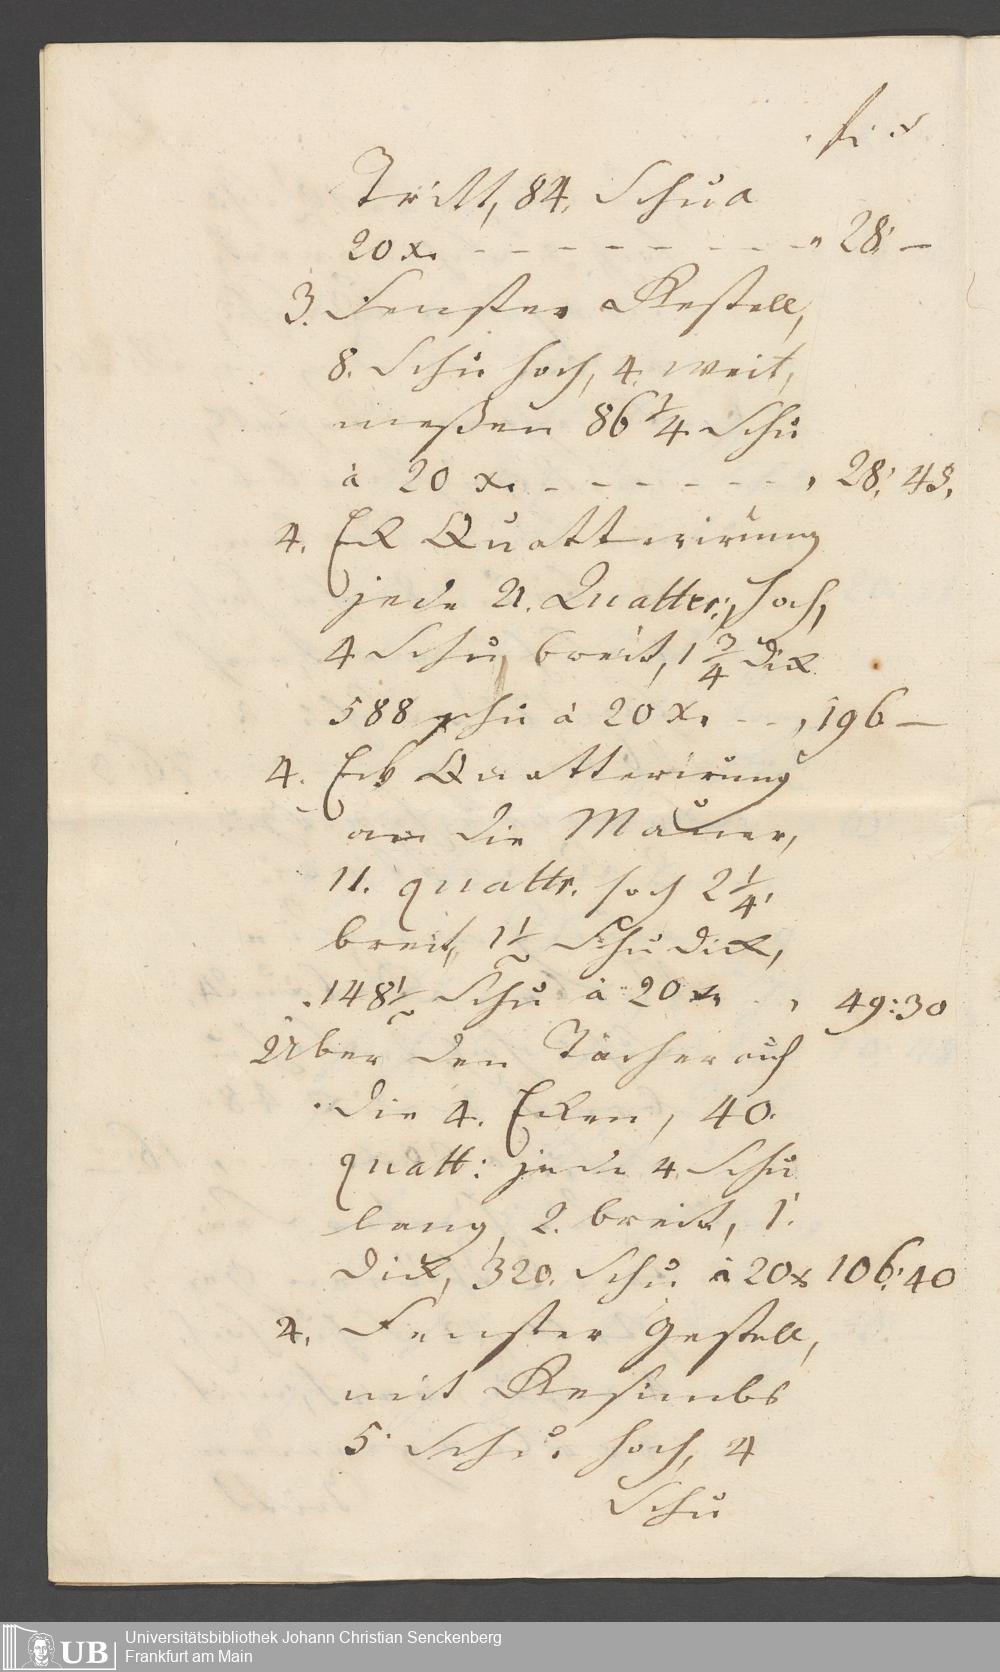 fl. x
Tritt, 84. Schu a
20 x. - - - - - - - - - " 28: —
3. Fenster Kestell,
8. Schu hoch, 4. weit,
meßen 86 1/4 Schu
à 20 x. - - - - - - , 28: 45.
4. Eck Quatterirung
jede 21. Quatter: hoch,
4 Schu breit, 1 3/4 dick
588 schu à 20 x. - - , 196 —
4. Eck Quatterirung
an die Mauer,
11. quattr. hoch 2 1/4.
breit, 1 1/2 Schu dick,
148 1/2 Schu à 20 x. - , 49:30
Über den Tächer auf
die 4. Ecken, 40.
quatt: jede 4 Schu
lang, 2. breit, 1.
dick, 320. Schu. à 20 x 106:40
4. Fenster Gestell,
mit Kesimbs
5. Schu. hoch, 4
Schu
UB
Universitätsbibliothek Johann Christian Senckenberg
Frankfurt am Main